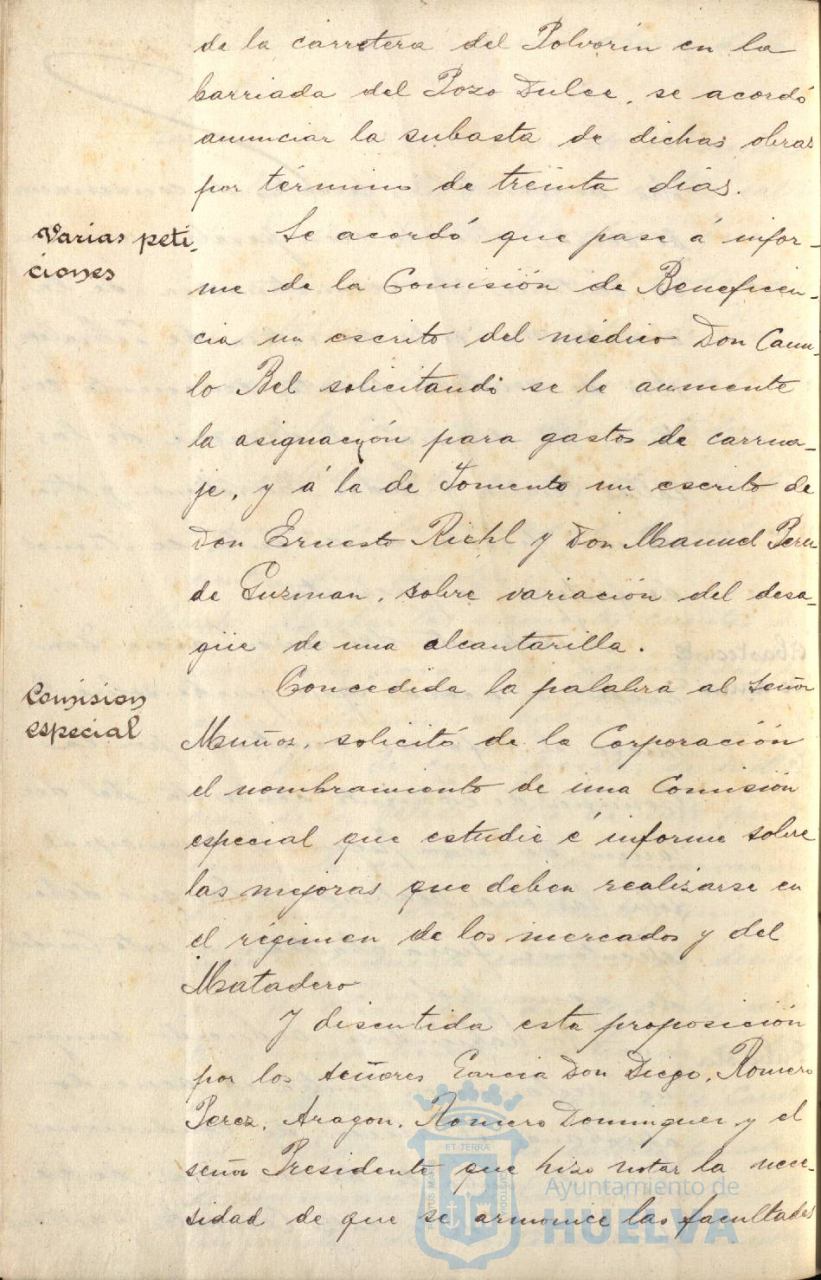 de la carretera del Polvorin en la
barriada del Pozo Dulce, se acordó
anunciar la subasta de dichas obras
por término de treinta dias.
Varias peti-
ciones
Se acordó que pase á infor-
me de la Comisión de Beneficen-
cia un escrito del médico Don Cami-
lo Bel solicitando se le aumente
la asignación para gastos de carrua-
je, y á la de Fomento un escrito de
Don Ernesto Riehl y Don Manuel Perez
de Guzman, sobre variación del desa-
güe de una alcantarilla.
Comision
especial
Concedida la palabra al señor
Muñoz, solicitó de la Corporación
el nombramiento de una Comisión
especial que estudie é informe sobre
las mejoras que deben realizarse en
el régimen de los mercados y del
Matadero
Y discutida esta proposición
por los señores Garcia Don Diego, Romero
Perez, Aragon, Romero Dominguez y el
señor Presidente que hizo notar la nece-
sidad de que se armonice las facultades
ET TERRA
Ayuntamiento de
HUELVA